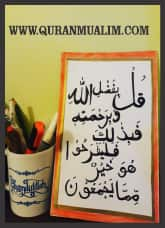 WWW.QURANMUALIM.COM
قُلْ بِفَضْلِ اللّٰهِ
وَبِرَحْمَتِهِ
فَبِذٰلِكَ
فَلْيَفْرَحُوا
هُوَ خَيْرٌ
مِمَّا يَجْمَعُونَ